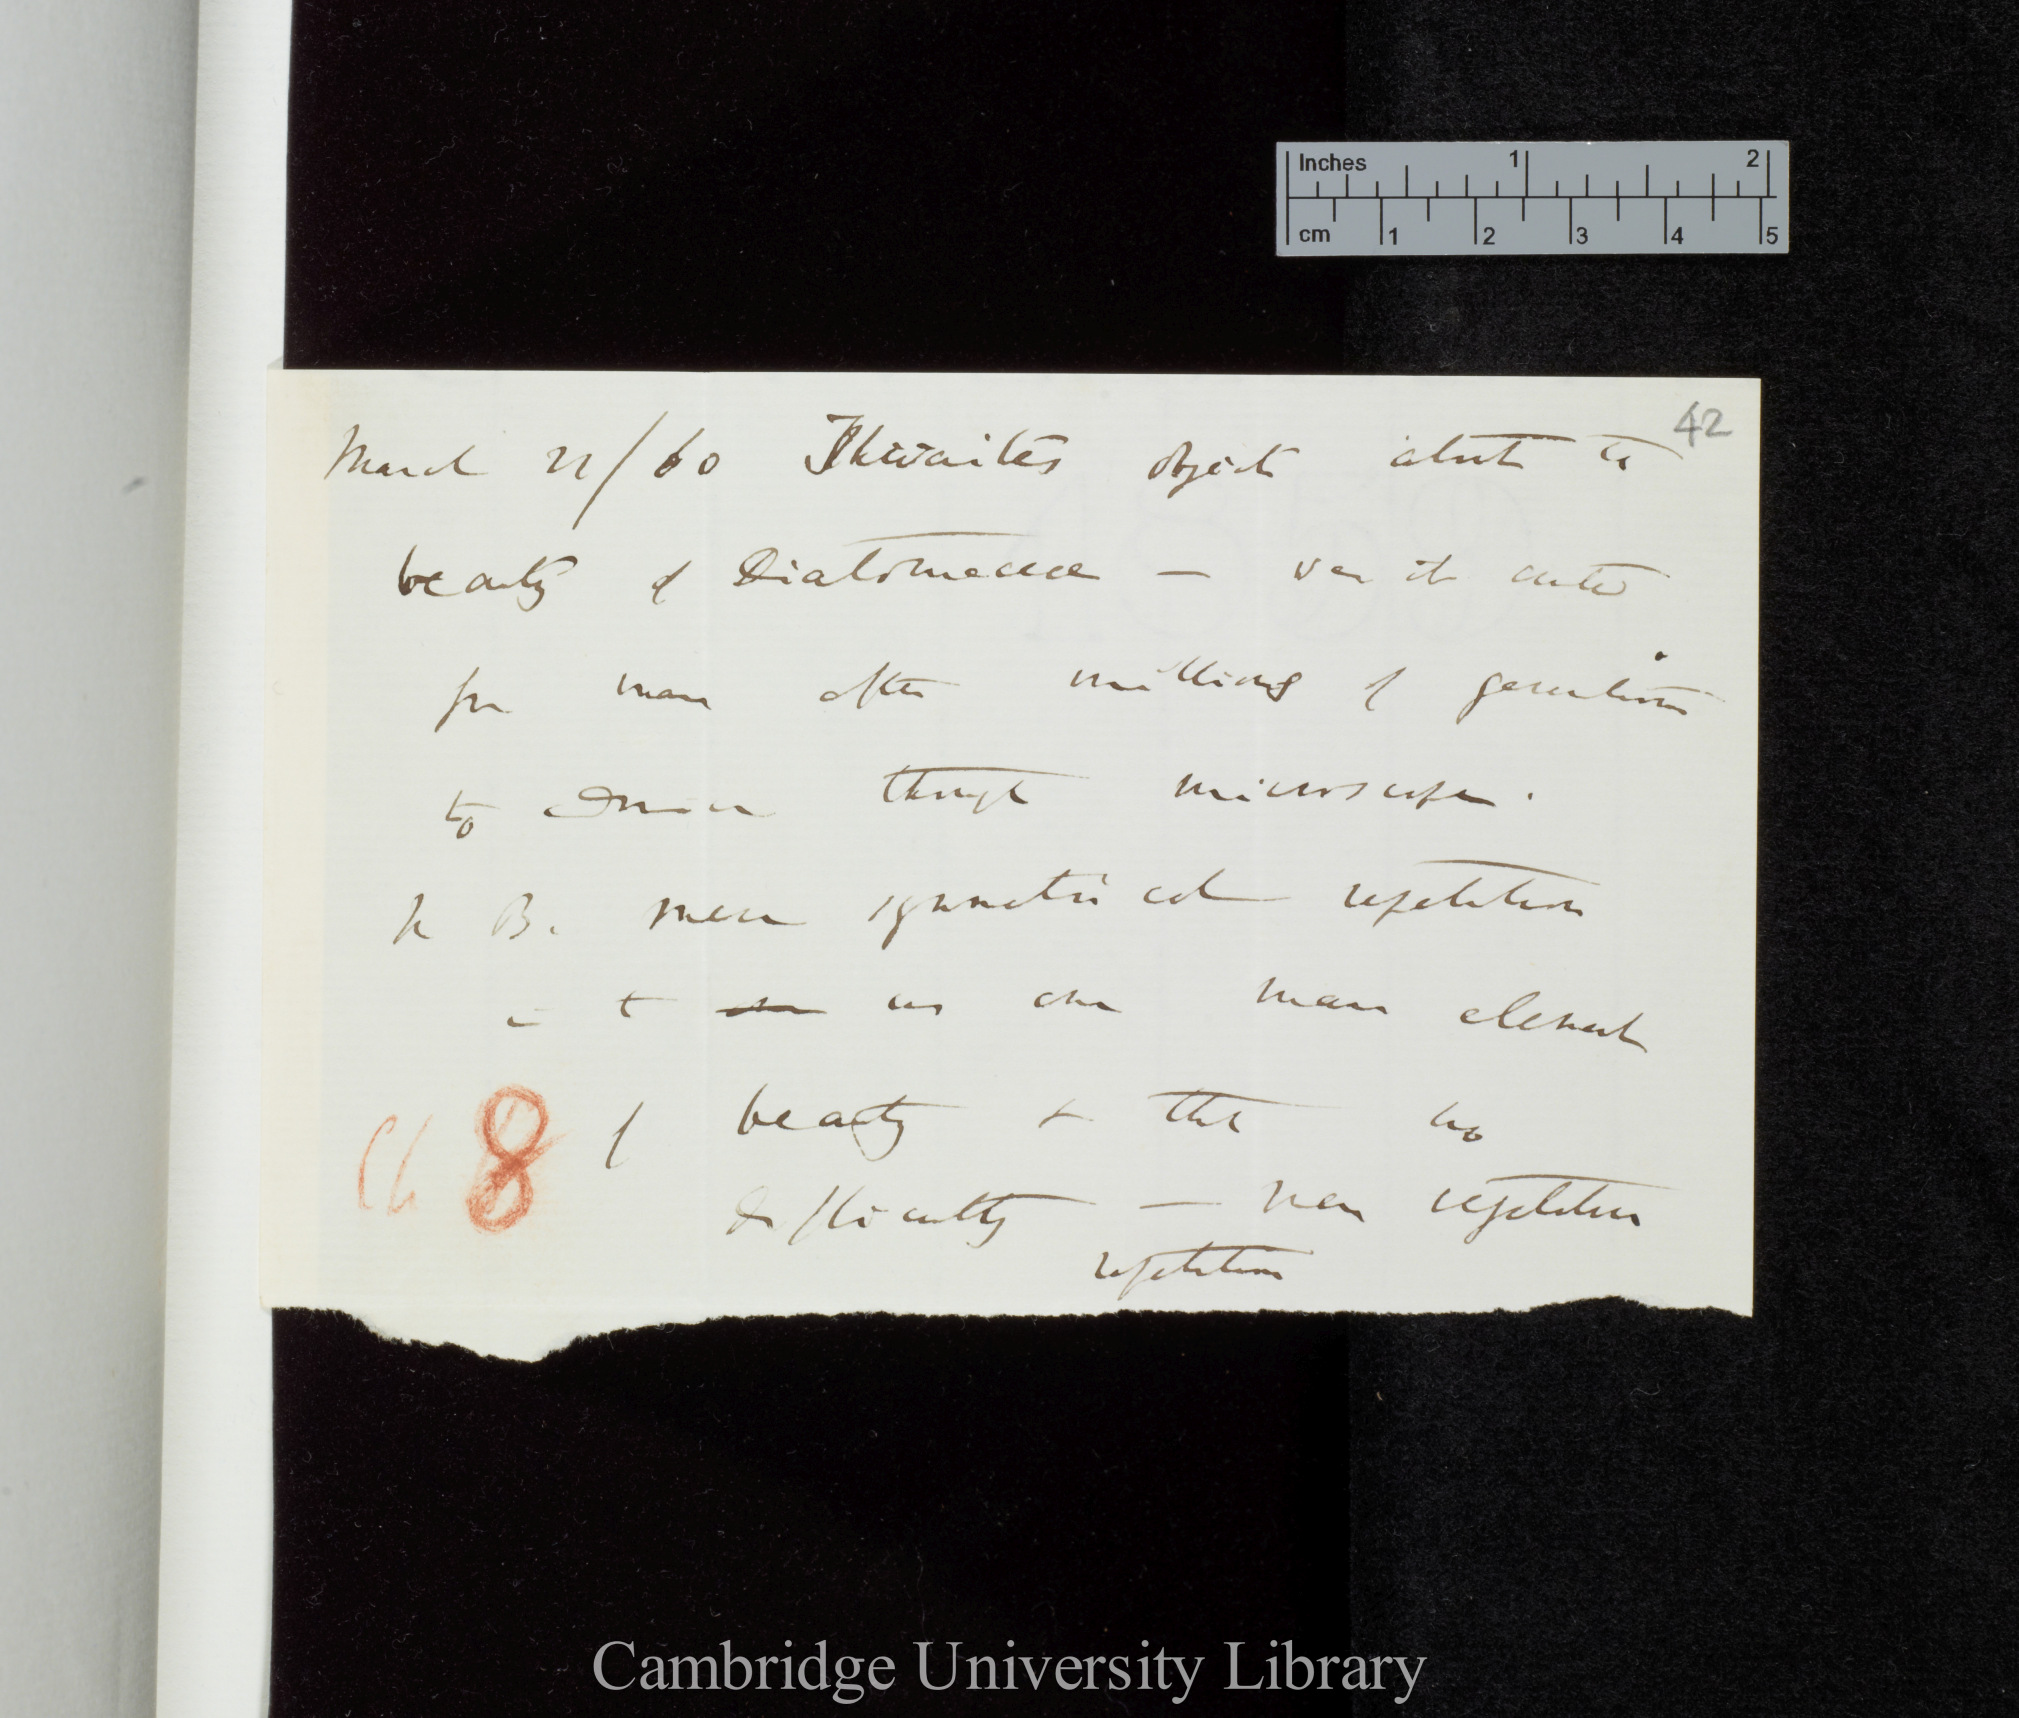 Inches 1 2
cm 1 2 3 4 5
42
March 21/60 Thwaites objects about to
beauty of Diatomaceæ — was it created
for man after millions of generations
to admire through microscope.
N B. mere symmetrical repetition
is to us one main element
of beauty & then no
difficulty — mere repetition
repetition
Ch 8
Cambridge University Library